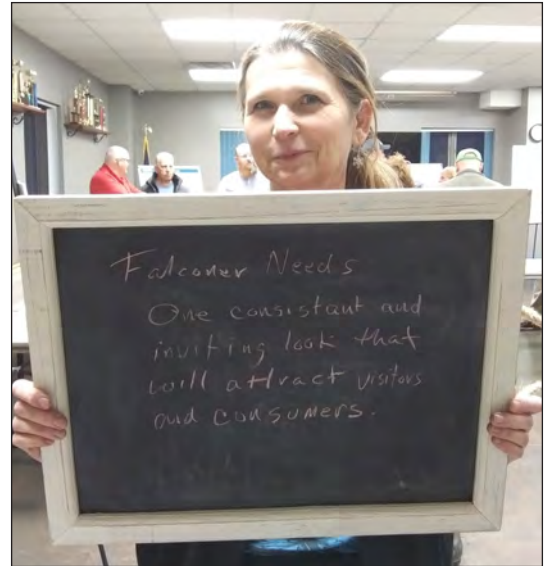 Falconer Needs
One consistant and
inviting look that
will attract visitors
and consumers.